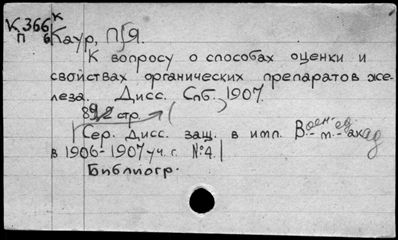 К 366 к
П 6
Каур, П. Я.
К вопросу о способах оценки и
свойствах органических препаратов же-
леза. Дисс. Спб. 1907.
892 стр.
Сер. Дисс. защ. в имп. Воен.-м.ед. акад
в 1906-1907 уч. г. №4.
Библиогр.